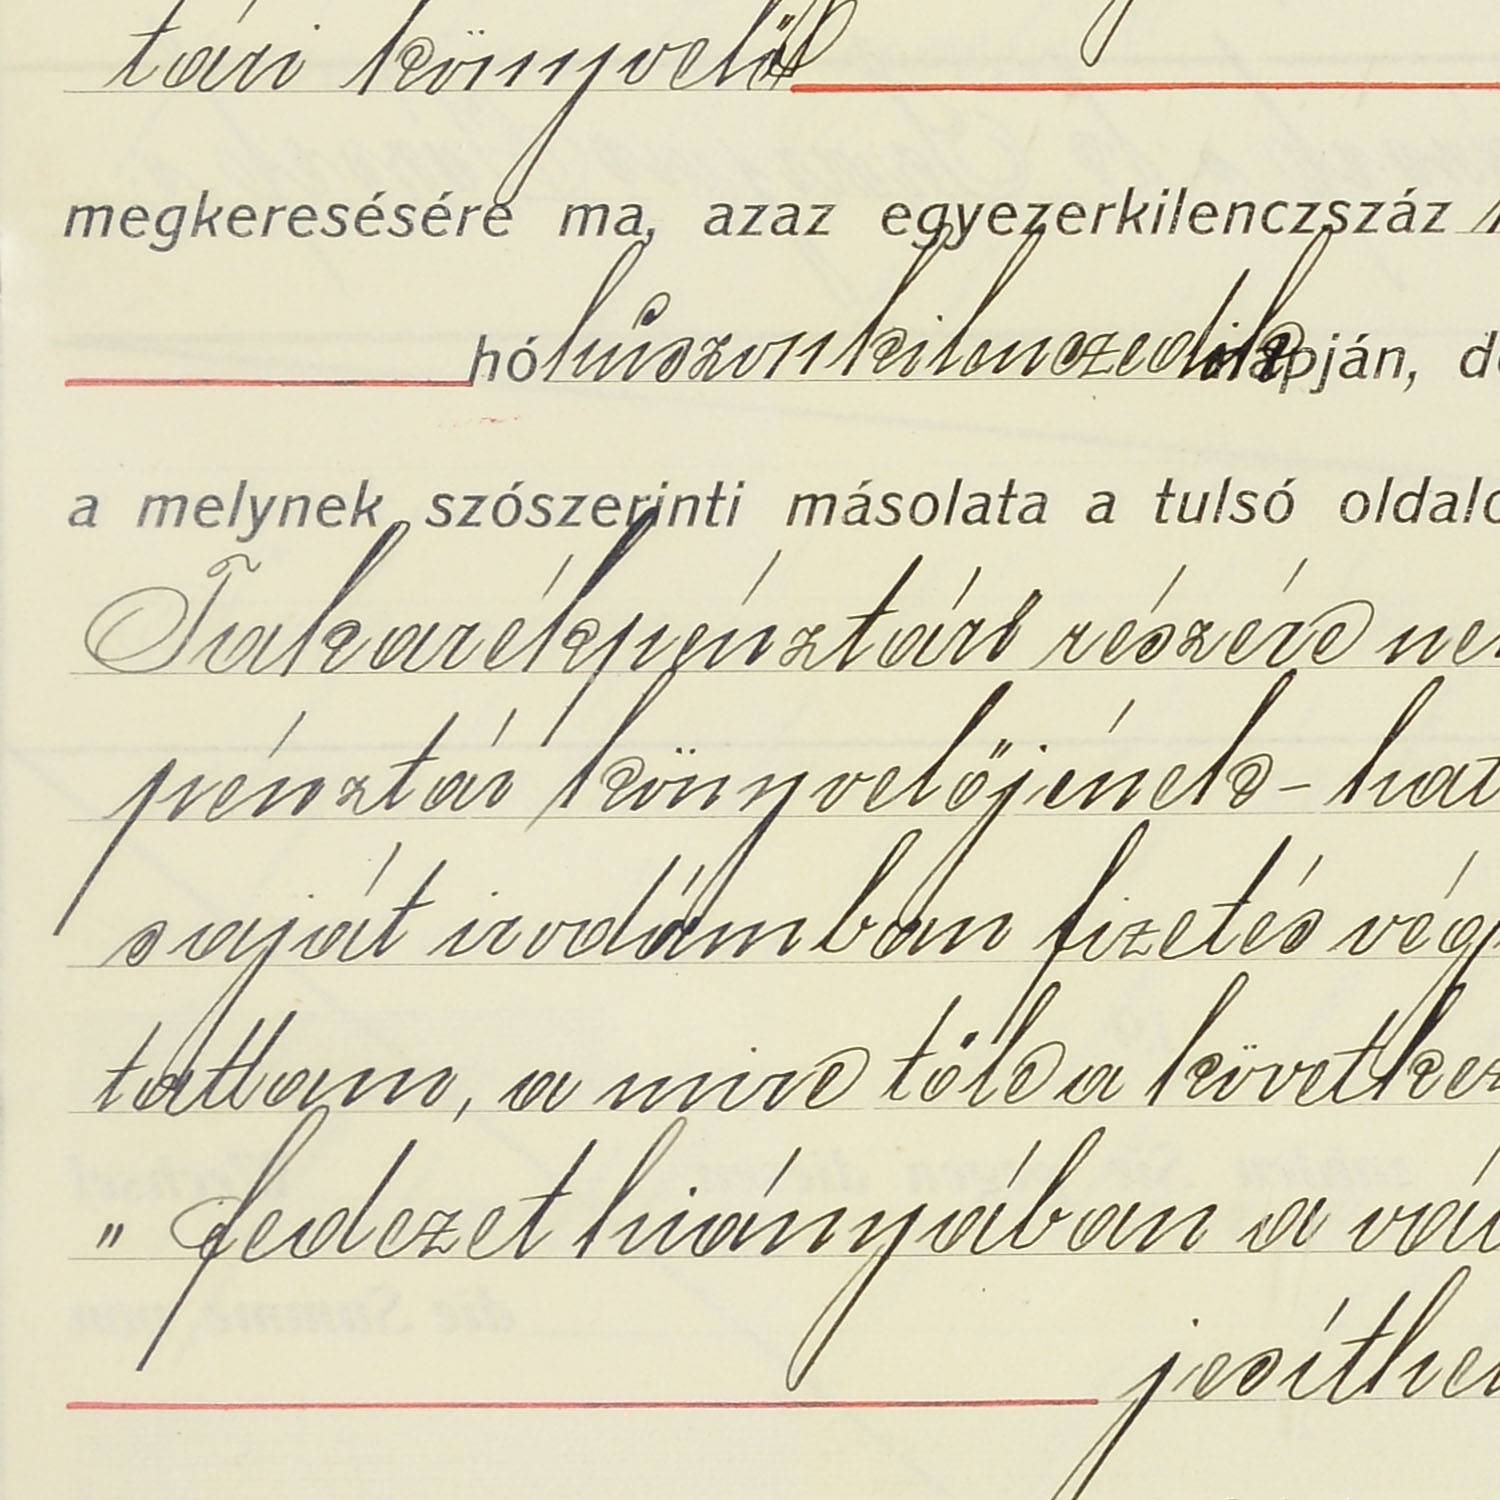 tári könyvelő
megkeresésére ma, azaz egyezerkilenczszáz
hó huszonkilenczedik napján, de
a melynek szószerinti másolata a tulsó oldalo
Takarékpénztár részére ner
pénztár könyvelőjének – hat
saját irodámban fizetés vég
tattam, a mire tőle a következ
" fedezet hiányában a vál
jesíthet